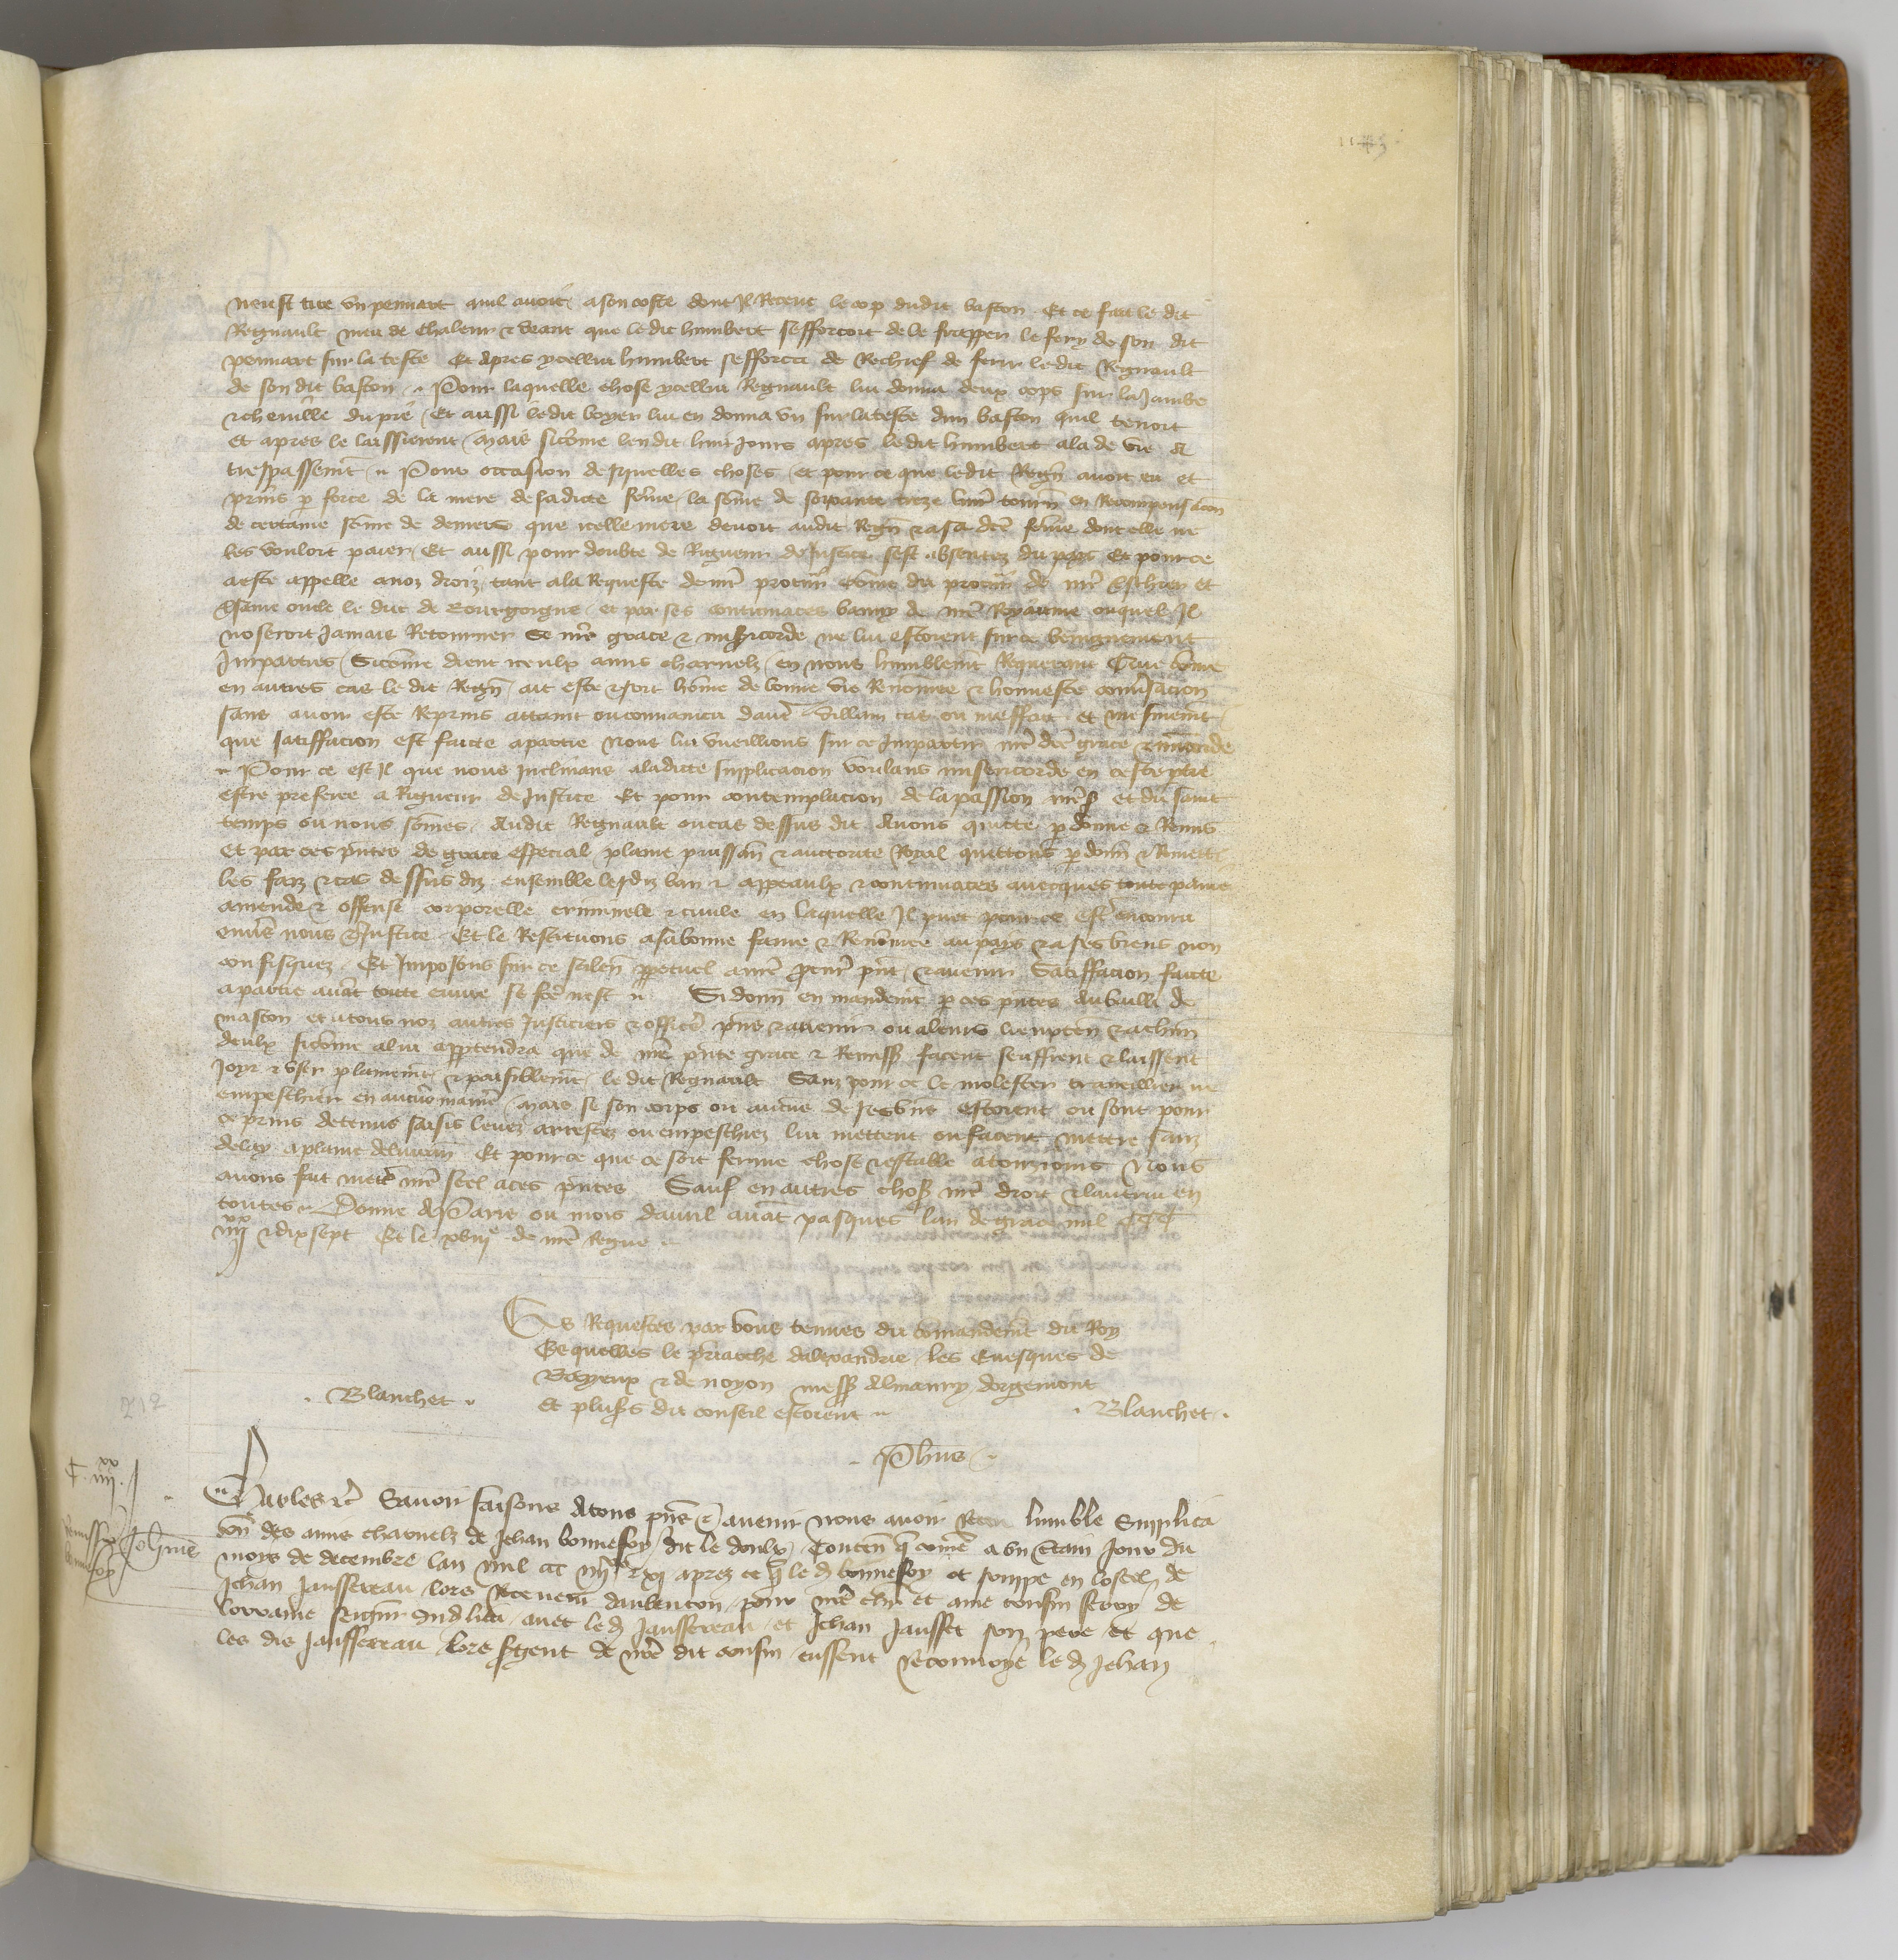 neust tire un pennart quil avoit a son coste dont Il Receut le cop dudit baston Et ce fait le dit
Regnault meu de chaleur & veant que ledit humbert sefforcoit de le frapper le fery de son dit
pennart sur la teste Et apres ycellui humbert sefforca de Rechief de ferir ledit Regnault
de son dit baston Pour laquelle chose ycellui Regnault lui donna deux cops sur la Jambe
& cheville du pie Et aussi ledit boyer lui en donna un sur la teste dun baston quil tenoit
Et apres le laissierent Mais sicōme len dit huit Jours apres ledit humbert ala de vie a
trespassemt Pour occasion desquelles choses et pour ce que ledit Regn avoit eu et
prins p force de la mere de sadicte fēme la sōme de soixante treze livr tourn en Recompensacōn
de certaine sōme de deniers que icelle mere devoit audit Regn & a sa dce fēme dont elle ne
les vouloit paier Et aussi pour doubte de Rigueur de Justice sest absentez du pays Et pour ce
a este appelle a noz droiz tant a la Requeste de nre procur cōme du procur de nre treschier et
ame oncle le duc de Bourgoigne et par ses contumaces banny de nre Royaume ouquel Il
noseroit Jamais Retourner Se nre grace & misericorde ne lui estoient sur ce benignement
Imparties Sicōme dient iceulx amis charnelz en nous humblemt Requerant Que cōme
en autres cas le dit Regn ait este & soit hōme de bonne vie Renōmee & honneste conversacion
sans avoir este Reprins attaint ou convaincu daucū villain cas ou meffait et mesmemt
que satiffacion est faicte a partie Nous lui vueillions sur ce Impartir nre dce grace & misericorde
Pour ce est Il que nous Inclinans a ladicte supplicacion voulans misericorde en ceste ptie
estre preferee a Rigueur de Justice Et pour contemplacion de la passion nre sr et du saint
temps ou nous sōmes Audit Regnault ou cas dessus dit Avons quitte pdonne & Remis
et par ces pntes de grace especial plaine puissan & auctorite Royal quittons pdonn & Remettons
les faiz & cas dessus diz ensemble lesdiz ban & appeaulx & contumaces avecques toute paine
amende & offense corporelle criminele & civile en laquelle Il puet pour ce estre encouru
envers nous & Justice Et le Restituons a sa bonne fame & Renōmee au pays & a ses biens non
confisquez Et Imposons sur ce silen ppetuel a nre pcur pnt & avenir Satiffacion faicte
a partie avāt toute euvre se fce nest Si donn en mandemt p ces pntes au bailli de
mascon et a tous noz autres Justiciers & officers pns & avenir ou a leurs lieuxten & a chūn
deulx sicōme a lui appartendra que de nre pnte grace & Remiss facent seuffrent & laissent
Joyr & user plainemt & paisiblemt le dit Regnault Sanz pour ce le molester traveillier ne
empeschier en aucune maniere Mais se son corps ou aucūs de ses biēs estoient ou sont pour
ce prins detenus saisis levez arrestez ou empeschiez lui mettent ou facent mettre sanz
delay a plaine delivran Et pour ce que ce soit ferme chose & estable a tousjours Nous
avons fait mettre nre seel a ces pntes Sauf en autres choses nre droit & lautrui en
toutes Donne A Paris ou mois davril avāt pasques lan de grace mil CCC
iiijxx & dix sept Et le xviije de nre Regne
Es Requestes par vous tenues du cōmandemt du Roy
Esquelles le priarche dalexandrie les Evesques de
Bayeux & de noyon mess Almaury dorgemont
Et plusrs du conseil estoient
Blanchet
Blanchet
Phus
C iiijxx
Charles &c Savoir faisons A tous pns & avenir nous avoir Receu lumble Supplica
des amis charnelz de Jehan bonnefoy dit le doulx Conten q cōme a un certain Jour du
moys de decembre lan mil CCC iiijxx & xj aprez ce q le d bonnefoy ot souppe en lostel de
Jehan Jaussereau lors Receveur daubenton pour nre chr et ame cousin ferry de
lorraine seignr dud lieu avec le d Jaussereau et Jehan Jausset son pere et que
les dis Jaussereau lors sergent de nre dit cousin eussent Reconvoye le d Jehan